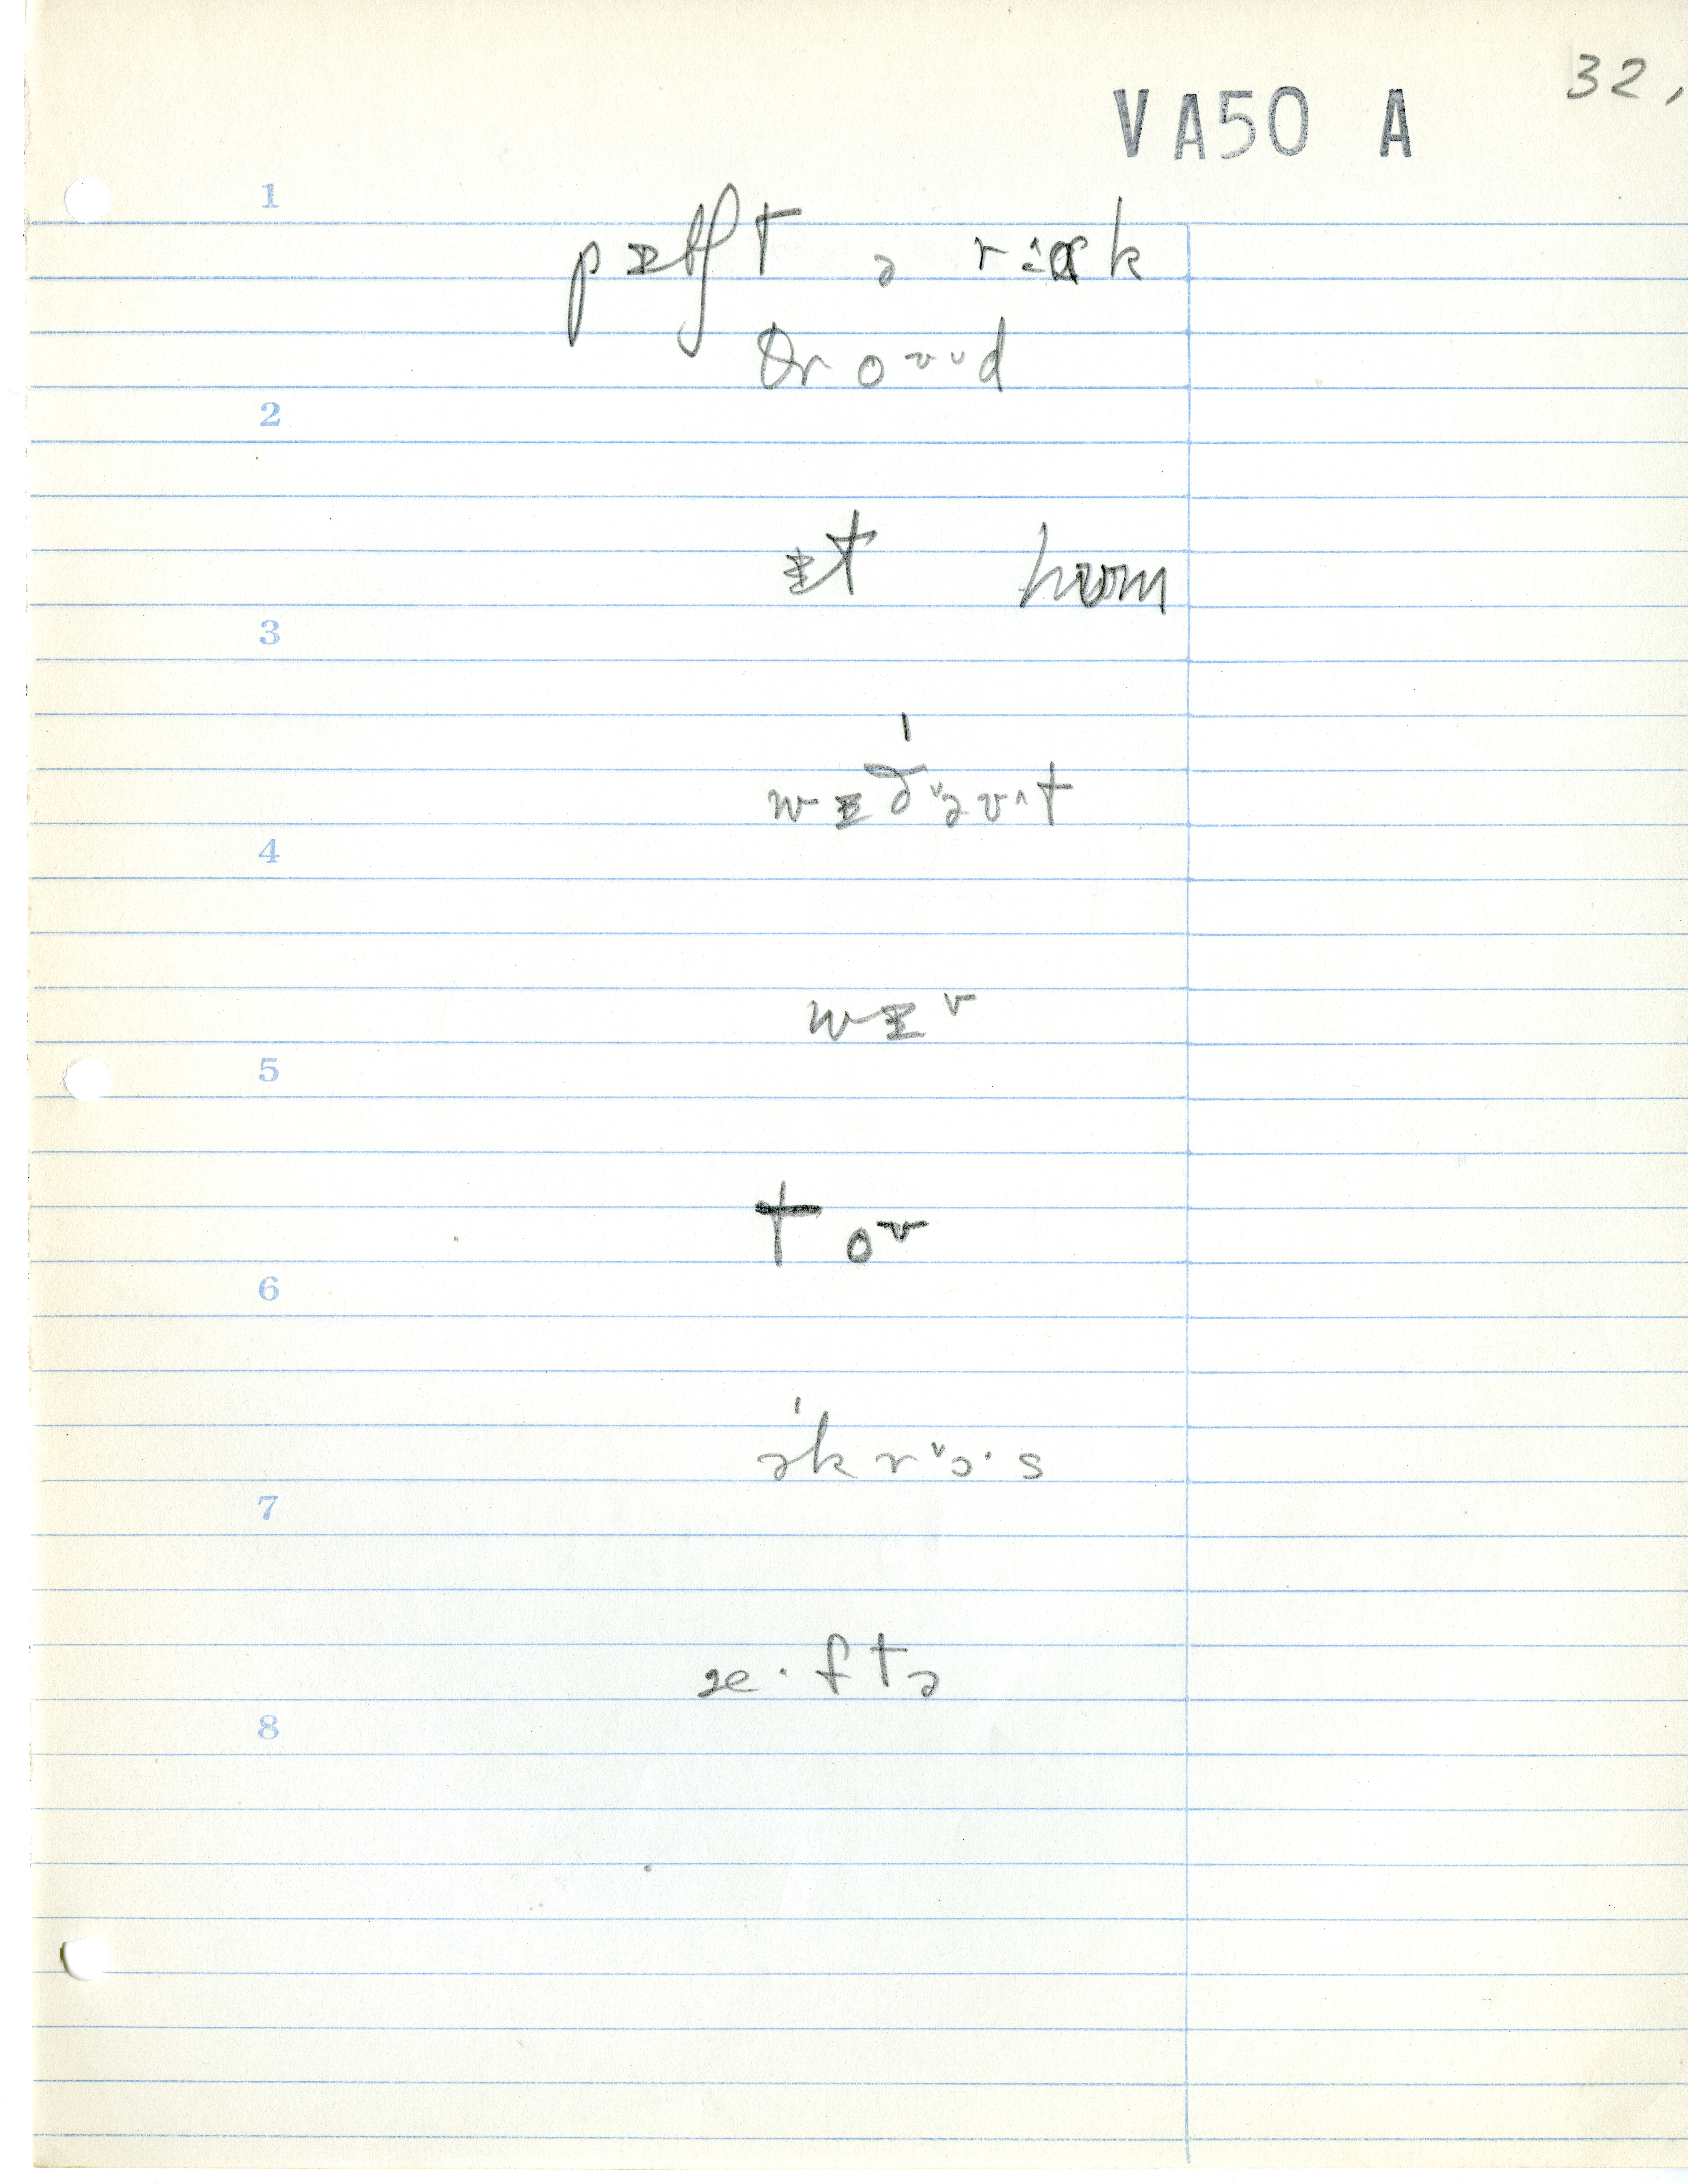 32,
VA50 A
1
pɪtʃt ə rɑk
θroʊd
2
ɪt hʊm
3
wɪðəʊt
4
wɪ
5
toʊ
6
əkrɔs
7
æ·ftə
8